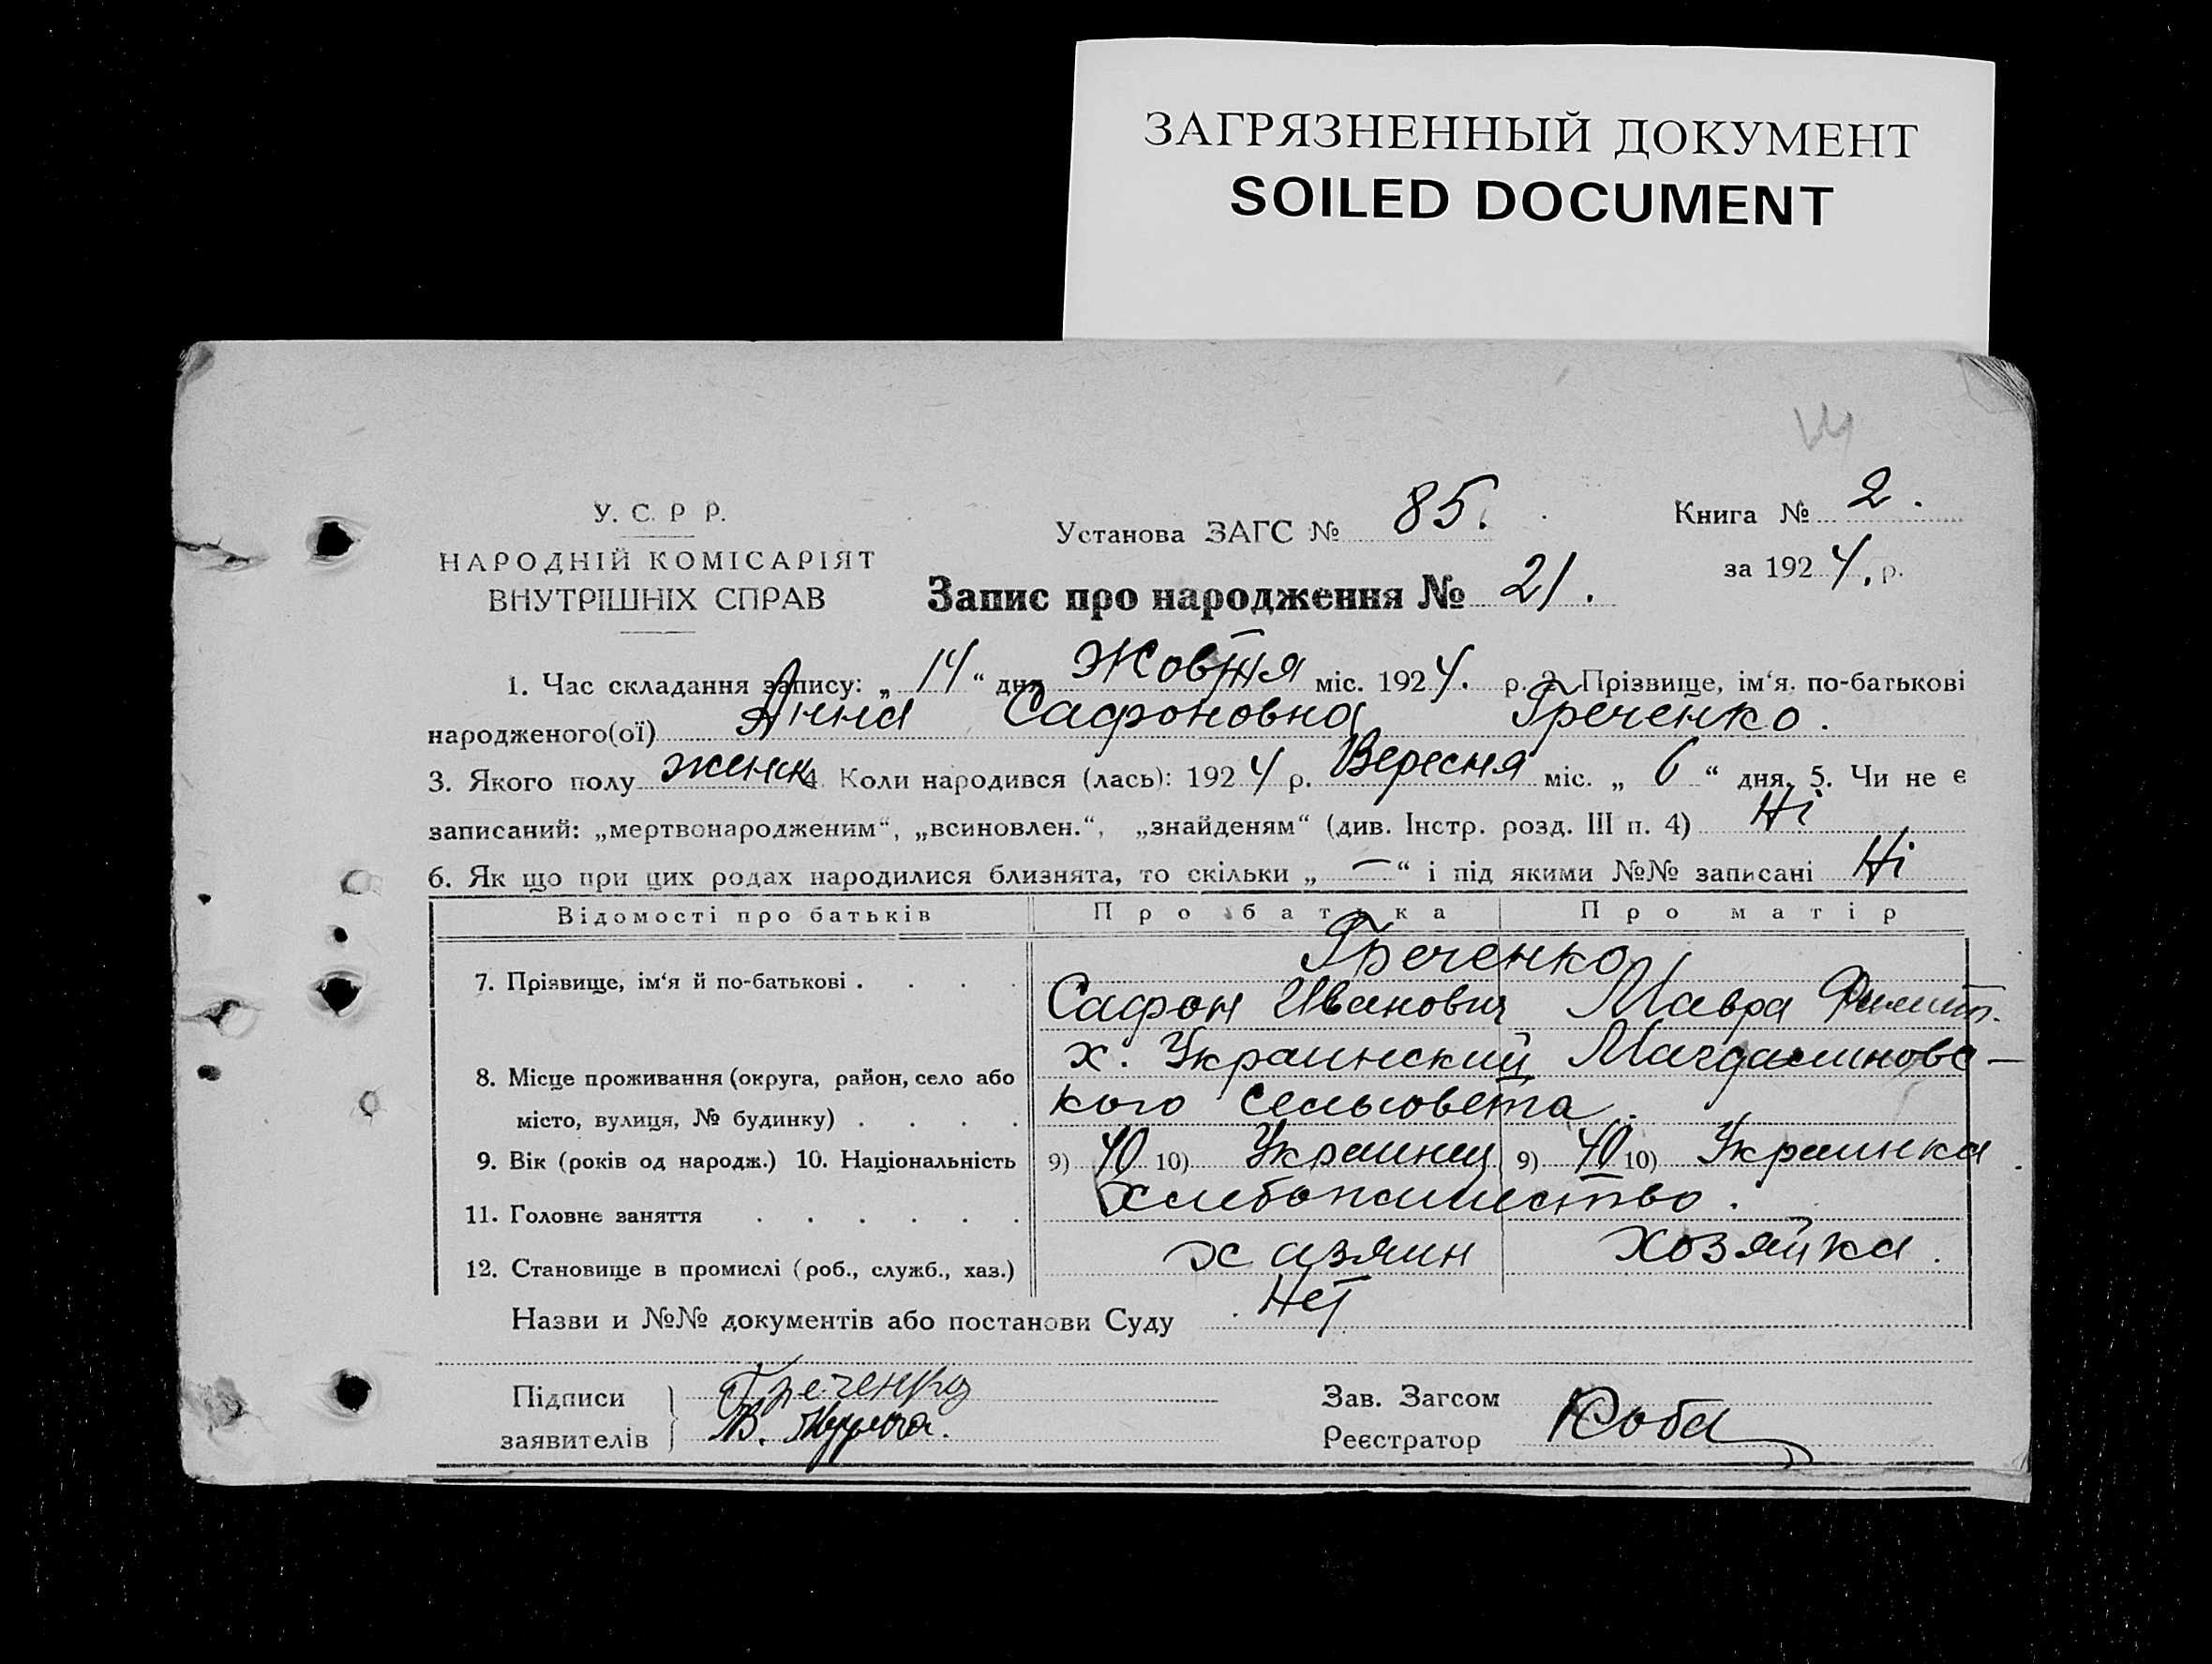 ЗАГРЯЗНЕННЫЙ ДОКУМЕНТ
SOILED DOCUMENT
У. С. Р Р.
НАРОДНІЙ КОМІСАРІЯТ
ВНУТРІШНІХ СПРАВ
Установа ЗАГС № 85.
Книга № 2.
за 1924. р.
Запис про народження № 21.
1. Час складання запису: „14“ дня Жовтня міс. 1924. р. 2. Прізвище, ім‘я, по-батькові
народженого(ої) Анна Сафоновна Греченко.
3. Якого полу женск 4. Коли народився (лась): 1924 р. Вересня міс. „6“ дня. 5. Чи не є
записаний: „мертвонародженим“, „всиновлен.“, „знайденям“ (див. Інстр. розд. III п. 4) Ні
6. Як що при цих родах народилися близнята, то скільки „—“ і під якими №№ записані Ні
Відомості про батьків Про батька Про матір
Греченко
7. Прізвище, ім‘я й по-батькові . . . .
Сафон Иванович Мавра Филип.
х. Украинский Магдалиновс-
8. Місце проживання (округа, район, село або
місто, вулиця, № будинку) . . . . кого Сельсовета.
9. Вік (років од народж.) 10. Національність 9) 40 10) Украинец 9) 40 10) Украинка.
11. Головне заняття . . . . . . Хлебопашество.
12. Становище в промислі (роб., служб., хаз.) хазяин хозяйка.
Назви и №№ документів або постанови Суду Нет
Підписи
заявителів
Греченко
В.
Зав. Загсом
Реєстратор
Коба